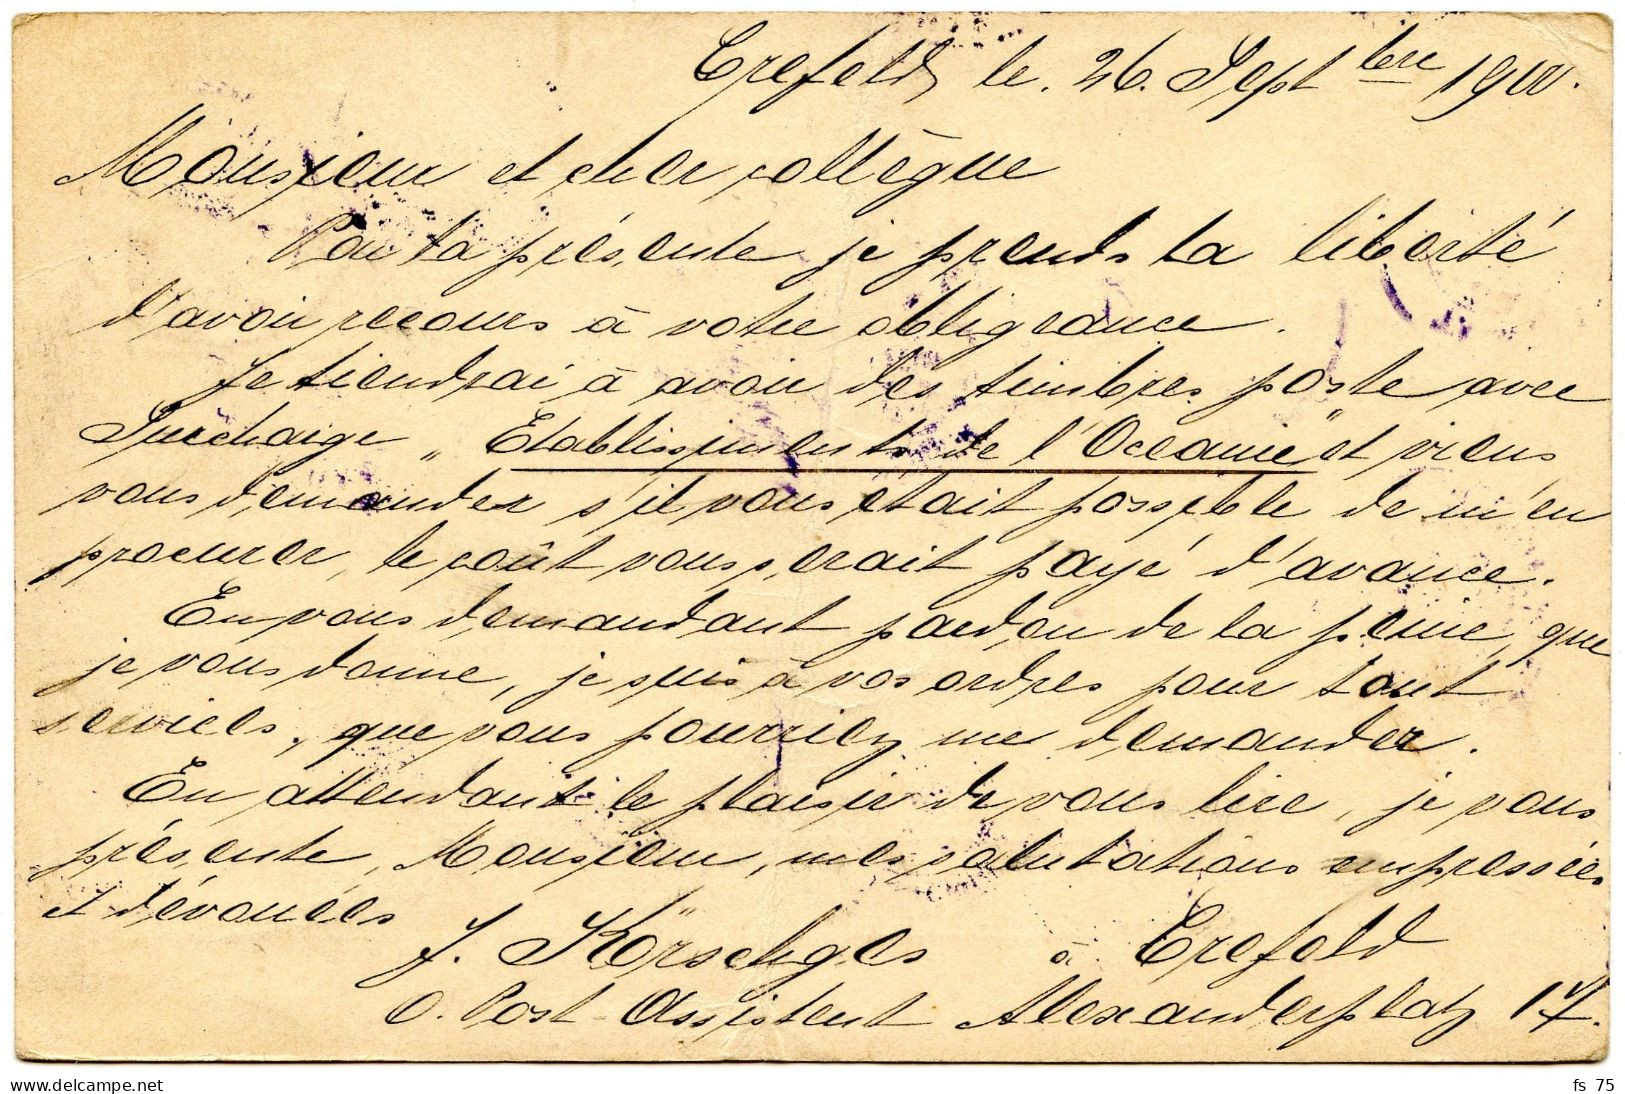 Crefeld, le. 26. Septbre 1900.
Monsieur et cher collègue
Par la présente je prends la liberté
d'avoir recours à votre obligeance.
Je tiendrai à avoir des timbres poste avec
Surcharge „Etablissements de l'Oceanie" et viens
vous demander s'il vous etait possible de m'en
procurer, le coût vous serait payé d'avance.
En vous demandant pardon de la peine, que
je vous donne, je suis à vos ordres pour tout
services, que vous pourriez me demander.
En attendant le plaisir de vous lire, je vous
présente, Monsieur, mes salutations empressées
et dévouées
J. Körschges à Crefeld
O. Post-Assistent Alexanderplatz 17.
delcampe.net
fs_75